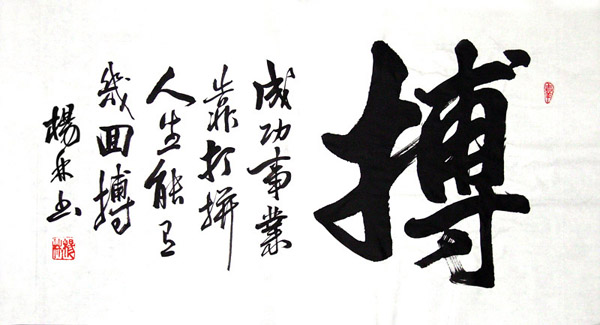 搏
成功事業
靠打拼
人生能有
幾回搏
楊林书